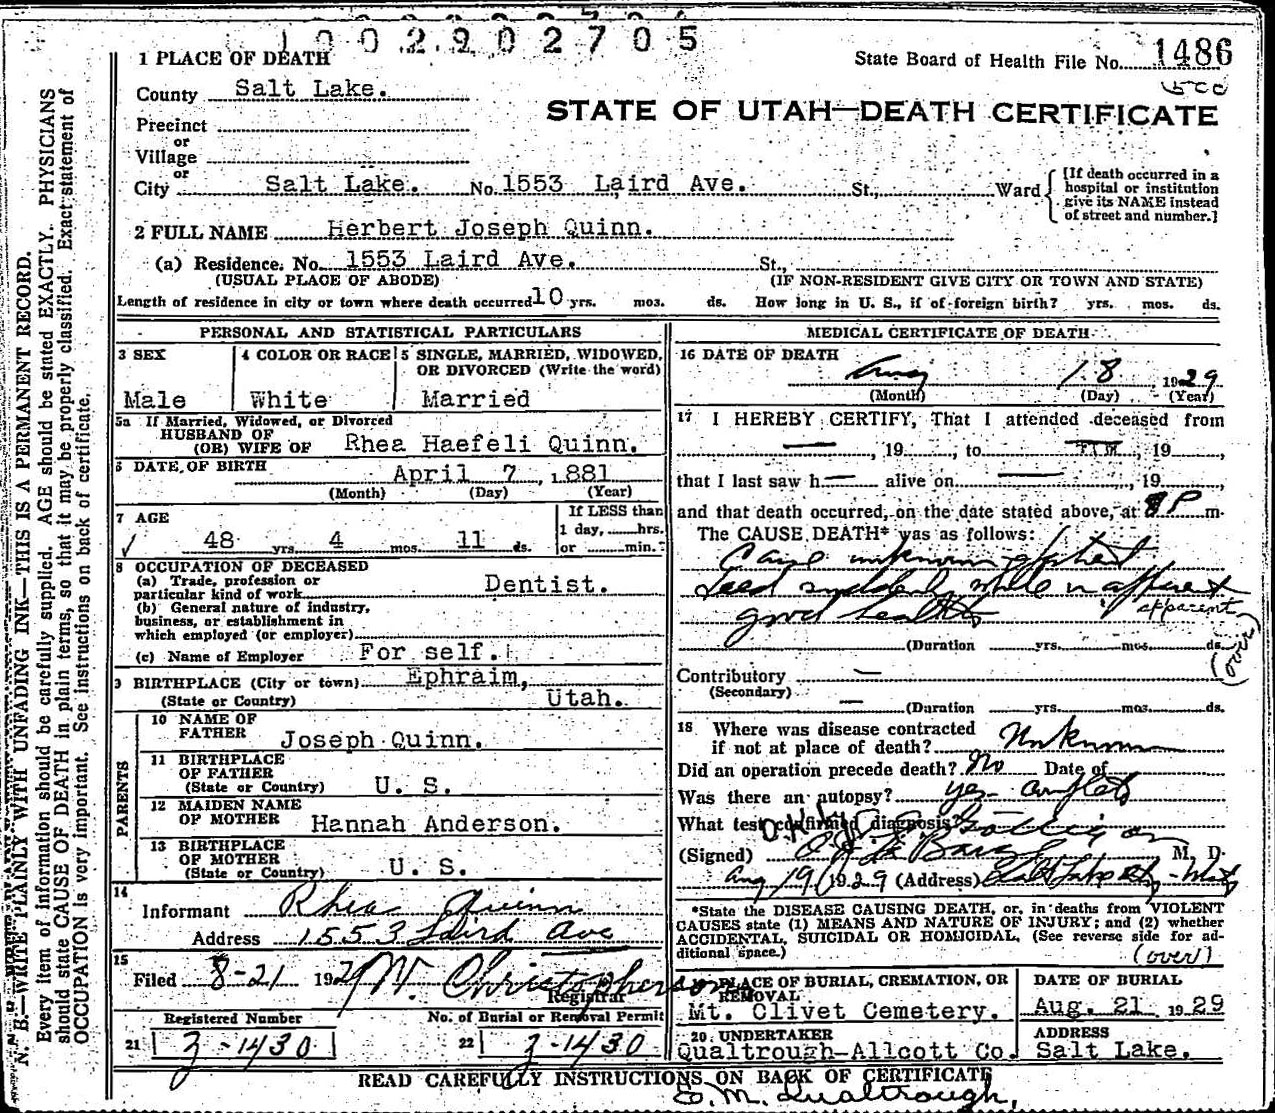 1002902705
1 PLACE OF DEATH
State Board of Health File No. 1486
County Salt Lake.
STATE OF UTAH—DEATH CERTIFICATE
Precinct
or
Village
or
City Salt Lake. No. 1553 Laird Ave. St., Ward
[If death occurred in a
hospital or institution
give its NAME instead
of street and number.]
2 FULL NAME Herbert Joseph Quinn.
(a) Residence. No. 1553 Laird Ave. St.,
(USUAL PLACE OF ABODE) (IF NON-RESIDENT GIVE CITY OR TOWN AND STATE)
Length of residence in city or town where death occurred 10 yrs. mos. ds. How long in U. S., if of foreign birth? yrs. mos. ds.
PERSONAL AND STATISTICAL PARTICULARS
3 SEX
Male
4 COLOR OR RACE
White
5 SINGLE, MARRIED, WIDOWED,
OR DIVORCED (Write the word)
Married
5a If Married, Widowed, or Divorced
HUSBAND OF
(OR) WIFE OF Rhea Haefeli Quinn.
6 DATE OF BIRTH April 7, 1881
(Month) (Day) (Year)
7 AGE
48 yrs. 4 mos. 11 ds.
If LESS than
1 day, hrs.
or min.
8 OCCUPATION OF DECEASED
(a) Trade, profession or
particular kind of work Dentist.
(b) General nature of industry,
business, or establishment in
which employed (or employer)
(c) Name of Employer For self.
9 BIRTHPLACE (City or town) Ephraim,
(State or Country) Utah.
PARENTS
10 NAME OF
FATHER Joseph Quinn.
11 BIRTHPLACE
OF FATHER
(State or Country) U. S.
12 MAIDEN NAME
OF MOTHER Hannah Anderson.
13 BIRTHPLACE
OF MOTHER
(State or Country) U. S.
14
Informant Rhea Quinn
Address 1553 Laird Ave
15
Filed 8-21 1929 W. Christopherson
Registrar
Registered Number No. of Burial or Removal Permit
21 Z-1430 22 Z-1430
MEDICAL CERTIFICATE OF DEATH
16 DATE OF DEATH
Aug 18 1929
(Month) (Day) (Year)
17 I HEREBY CERTIFY, That I attended deceased from
, 19 , to , 19 ,
that I last saw h alive on , 19
and that death occurred, on the date stated above, at 8 P m.
The CAUSE DEATH* was as follows:
Cause unknown
suddenly while in apparent
apparent
good health
(Duration yrs. mos. ds.
(over)
Contributory
(Secondary)
(Duration yrs. mos. ds.
18 Where was disease contracted
if not at place of death? Unknown
Did an operation precede death? No Date of
Was there an autopsy? yes
What test confirmed diagnosis?
(Signed) M. D.
Aug 19 1929 (Address) Salt Lake City, Utah
*State the DISEASE CAUSING DEATH, or, in deaths from VIOLENT
CAUSES state (1) MEANS AND NATURE OF INJURY; and (2) whether
ACCIDENTAL, SUICIDAL OR HOMICIDAL. (See reverse side for ad-
ditional space.)
(over)
19 PLACE OF BURIAL, CREMATION, OR
REMOVAL
Mt. Olivet Cemetery.
DATE OF BURIAL
Aug. 21 1929
20 UNDERTAKER
Qualtrough-Allcott Co.
ADDRESS
Salt Lake.
READ CAREFULLY INSTRUCTIONS ON BACK OF CERTIFICATE
E. M. Qualtrough,
N. B.—WRITE PLAINLY WITH UNFADING INK—THIS IS A PERMANENT RECORD.
Every item of information should be carefully supplied. AGE should be stated EXACTLY. PHYSICIANS
should state CAUSE OF DEATH in plain terms, so that it may be properly classified. Exact statement of
OCCUPATION is very important. See instructions on back of certificate.